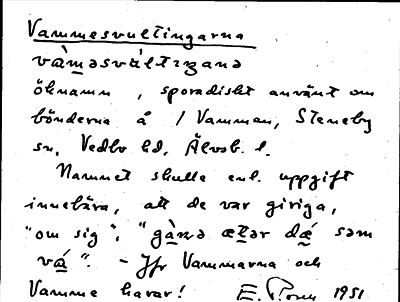 Vammesvultingarna
vàməsvúltɪŋanə
öknamn, sporadiskt använt om
bönderna å / Vamman, Steneby
sn, Vedbo hd, Älvsb. l.
Namnet skulle enl. uppgift
innebära, att de var giriga,
"om sig", "gànə ætər dǽ som
vá". - Jfr Vammarna och
Vamme karar! 1951